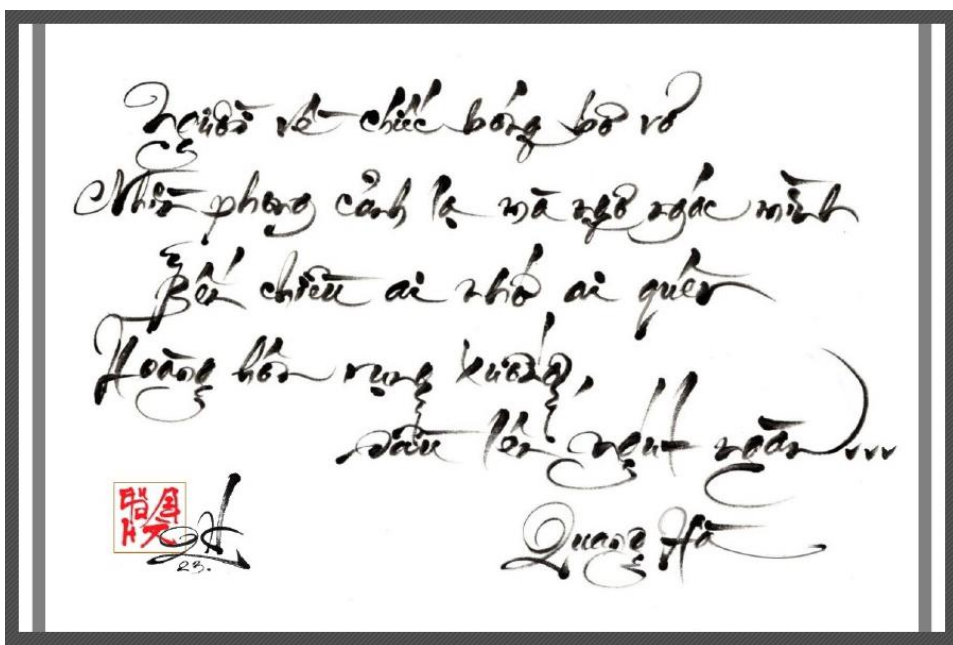 Người về chiếc bóng bơ vơ
Nhìn phong cảnh lạ mà ngơ ngác mình
Bến chiều ai nhớ ai quên
Hoàng hôn rụng xuống,
sầu lên ngút ngàn...
Quang Hà
QH
23.